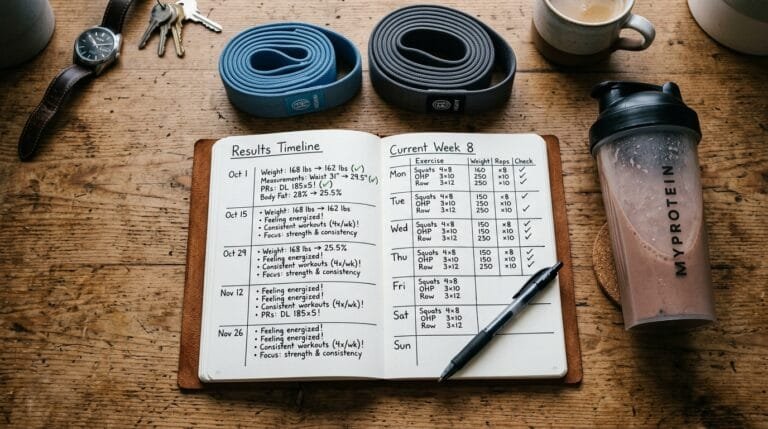 Results Timeline
Oct 1
Weight: 168 lbs → 162 lbs (✓)
Measurements: Waist 31" → 29.5" (✓)
PRs: DL 185x5! (✓)
Body Fat: 28% → 25.5%
Oct 15
• Weight: 168 lbs → 162 lbs
• Feeling energized!
• Consistent workouts (4x/wk)!
• Focus: strength & consistency
Oct 29
• Weight: 168 lbs → 25.5%
• Feeling energized!
• Consistent workouts (4x/wk)!
• Focus: strength & consistency
Nov 12
• Feeling energized!
• Feeling energized!
• Consistent workouts (4x/wk)!
• PRs: DL 185x5!
Nov 26
• Feeling energized!
• Feeling energized!
• Consistent workouts (4x/wk)!
• Focus: strength & consistency
Current Week 8
Exercise Weight Reps Check
Mon Squats 4x8 160 x8 ✓
OHP 3x10 250 x10 ✓
Row 3x12 250 x10 ✓
Tue Squats 4x8 150 x8 ✓
OHP 3x10 150 x10
Row 3x12 250 x10 ✓
Wed Squats 4x8 150 x8 ✓
OHP 3x10 150 x10 ✓
Row 3x12 250 x10 ✓
Thu Squats 4x8 150 x8 ✓
OHP 3x10 150 x10 ✓
Row 3x12 250 x10 ✓
Fri Squats 4x8
OHP 3x10
Row 3x12
Sat Squats 4x8
OHP 3x10
Row 3x12
Sun
MYPROTEIN